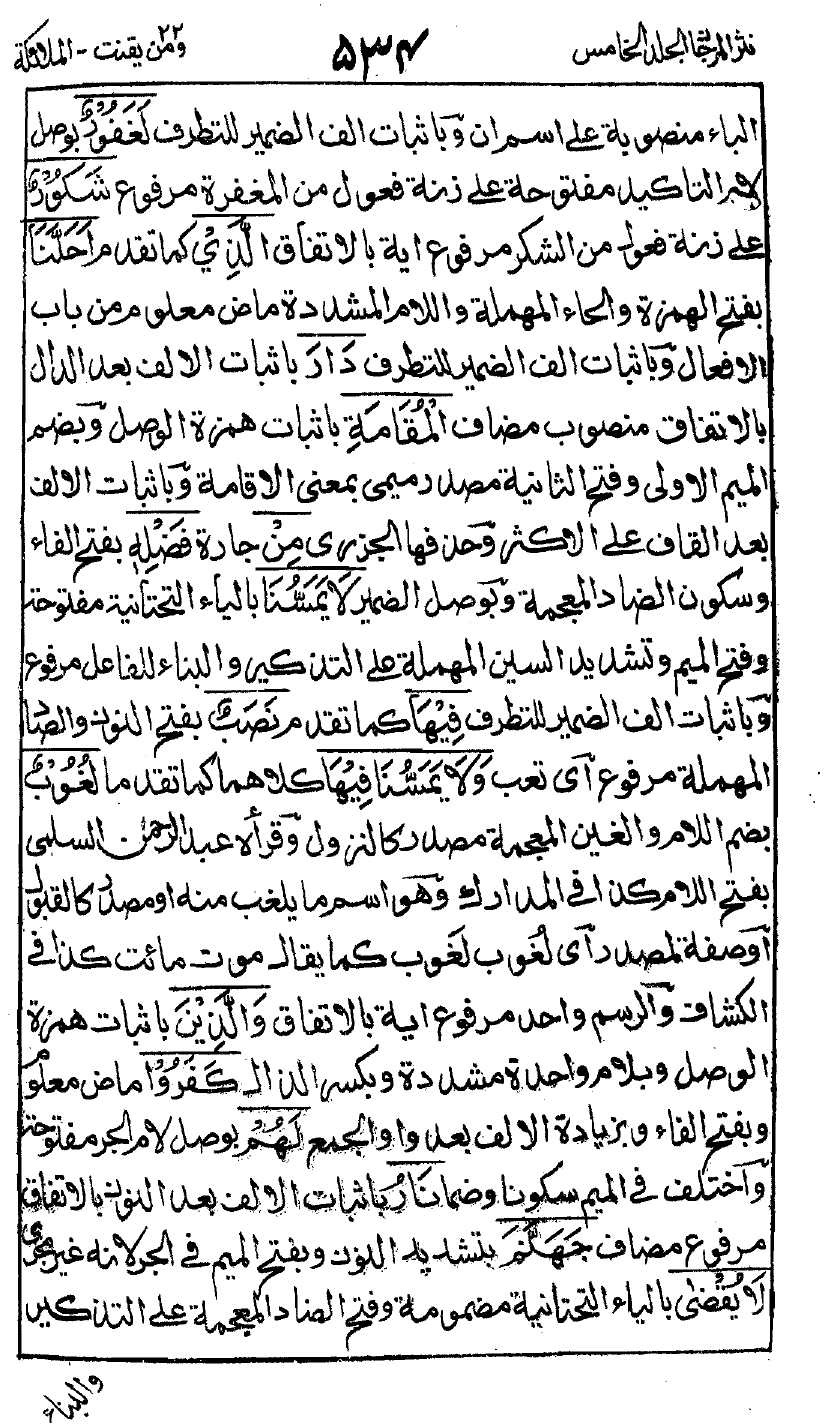 نثر المرجان المجلد الخامس ۵۳۴ ومن يقنت ۲۲ - الملائكة
الباء منصوبة على اسم ان وباثبات الف الضمير للتطرف لَغَفُوْرٌ بوصل
لام التاكيد مفتوحة على زنة فعول من المغفرة مرفوع شَكُوْرٌ
على زنة فعول من الشكر مرفوع اية بالاتفاق الَّذِيْ كما تقدم اَحَلَّنَا
بفتح الهمزة والحاء المهملة واللام المشددة ماض معلوم من باب
الافعال وباثبات الف الضمير للتطرف دَارَ باثبات الالف بعد الدال
بالاتفاق منصوب مضاف الْمُقَامَةِ باثبات همزة الوصل وبضم
الميم الاولى وفتح الثانية مصدر ميمى بمعنى الاقامة وباثبات الالف
بعد القاف على الاكثر وحذفها الجزرى مِنْ جادة فَضْلِهٖ بفتح الفاء
وسكون الضاد المعجمة وبوصل الضمير لَا يَمَسُّنَا بالياء التحتانية مفتوحة
وفتح الميم وتشديد السين المهملة على التذكير والبناء للفاعل مرفوع
وباثبات الف الضمير للتطرف فِيْهَا كما تقدم نَصَبٌ بفتح النون والصاد
المهملة مرفوع اى تعب وَلَا يَمَسُّنَا فِيْهَا كلاهما كما تقدما لُغُوْبٌ
بضم اللام والغين المعجمة مصدر كالنزول وقرأه عبد الرحمن السلمى
بفتح اللام كذا فى المدارك وهو اسم ما يلغب منه او مصدر كالقبول
اوصفة لمصدر اى لُغوب لَغوب كما يقال موت مائت كذا فى
الكشاف والرسم واحد مرفوع اية بالاتفاق وَالَّذِيْنَ باثبات همزة
الوصل وبلام واحدة مشددة وبكسر الذال كَفَرُوْا ماض معلوم
وبفتح الفاء وبزيادة الالف بعد واو الجمع لَهُمْ بوصل لام الجر مفتوحة
واختلف فى الميم سكونا وضما نَارُ باثبات الالف بعد النون بالاتفاق
مرفوع مضاف جَهَنَّمَ بتشديد النون وبفتح الميم فى الجر لانه غير مجرى
لَا يُقْضٰى بالياء التحتانية مضمومة وفتح الضاد المعجمة على التذكير
والبناء